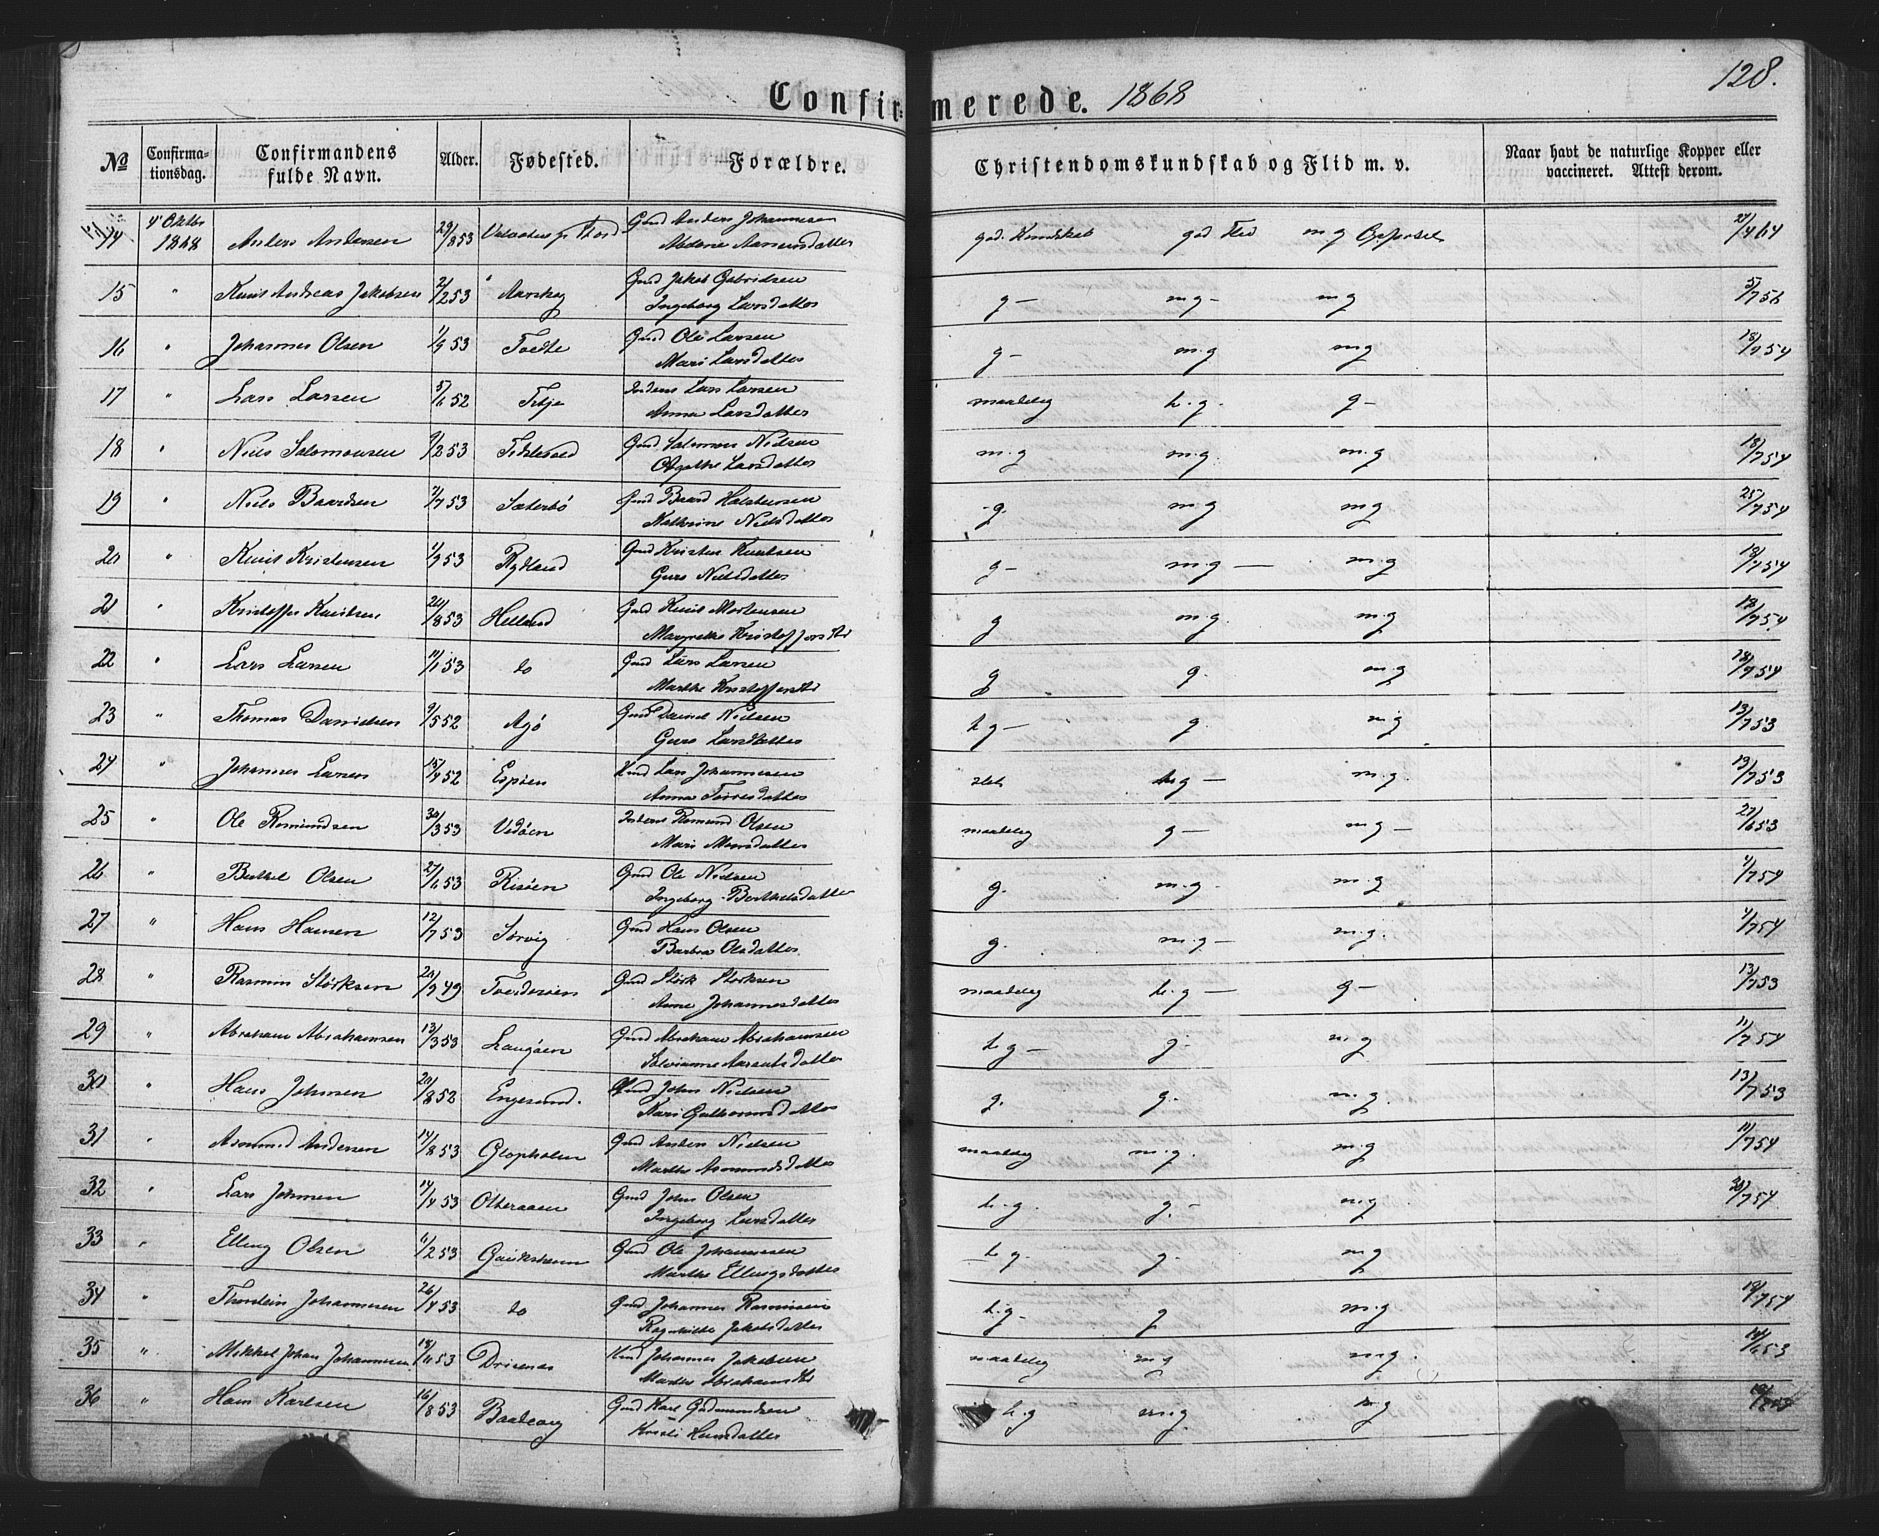 Confir- merede. 1868 128.
No Confirma- tionsdag. Confirmandens fulde Navn. Alder. Fødested. Forældre. Christendomskundskab og Flid m. v. Naar havt de naturlige Kopper eller vaccineret. Attest derom.
14 4 Oktbr 1868 Anders Andersen 29/8 53 Gmd Anders Johannesen god Kundskab god Flid m g Opførsel 27/4 64
15 " Knut Andreas Jakobsen 2/2 53 Aarskog Gmd Jakob Gabrielsen g - m g - m g 5/7 56
Ingeborg Larsdatter
16 " Johannes Olsen 1/9 53 Tvedte Gmd Ole Larsen g - m.g m g 18/7 54
Mari Larsdatter
17 " Lars Larsen 5/6 52 Inderst Lars Larsen maadelig t.g. g -
Anna Larsdatter
18 " Niels Salomonsen 9/2 53 Gmd Salomon Nielsen m.g m.g. m.g 18/7 54
Agathe Larsdatter
19 " Niels Baardsen 7/7 53 Sæterbø Gmd Baard Halstensen g. m g m g 25/7 54
Kathrine Nielsdatter
20 " Knut Kristensen 1/9 53 Rydland Gmd Kristen Knutsen g - m g - m.g 18/7 54
Guro Nielsdatter
21 " Kristoffer Knutsen 24/8 53 Helland Gmd Knut Mortensen g m.g. m.g 18/7 54
Margrethe
22 " Lars Larsen 11/1 53 do Gmd Lars Larsen g g. m.g 18/7 54
Marthe
23 " Thomas Danielsen 9/5 52 Agø Gmd Daniel Nielsen t g - g. m.g 13/7 53
Guro Larsdatter
24 " Johannes Larsen 18/4 52 Espien Hmd Lars Johannesen slet t g - m.g. 13/7 53
Anna Torresdatter
25 " Ole Romundsen 30/3 53 Vedøen Inderst Romund Olsen maadelig g - m g - 27/6 53
Mari Monsdatter
26 " Berthel Olsen 27/6 53 Risøen Gmd Ole Nielsen g. m.g. m.g 4/7 54
Ingeborg Berthelsdatter
27 " Hans Hansen 12/7 53 Sørvig Gmd Hans Olsen g. m.g - m.g. 4/7 54
Barbra Olsdatter
28 " Rasmus Størksen 20/9 49 Gmd Størk Størksen maadelig t.g - g - 13/7 53
Anne Johannesdatter
29 " Abraham Abrahamsen 13/3 53 Langøen Gmd Abraham Abrahamsen t g - g. m.g 11/7 54
30 " Hans Johnsen 20/8 52 Engesund. Gmd John Nielsen g. g. m.g. 13/7 53
Kari
31 " Asmund Andersen 14/8 53 Glopholm Gmd Anders Nielsen maadelig m.g. m.g 11/7 54
Marthe Asmundsdatter
32 " Lars Johnsen 14/4 53 Otteraaen Gmd John Olsen t.g. g. m.g 20/7 54
Ingeborg Larsdatter
33 " Elling Olsen 11/2 53 Gmd Ole Johannesen t g. g. m g
Marthe Ellingsdatter
34 " Thorstein Johannesen 26/4 53 do Gmd Johannes Rasmussen t.g - g m.g 18/7 54
Ragnhilde Jakobsdatter
35 " Mikkel Johan Johannesen 18/11 53 Drivenæs Hmd Johannes Jakobsen maadelig m g m g. 18/6 53
Marthe
36 " Hans Karlsen 16/8 53 Gmd Karl Gudmundsen t.g m.g. m g
Kristi Hansdatter